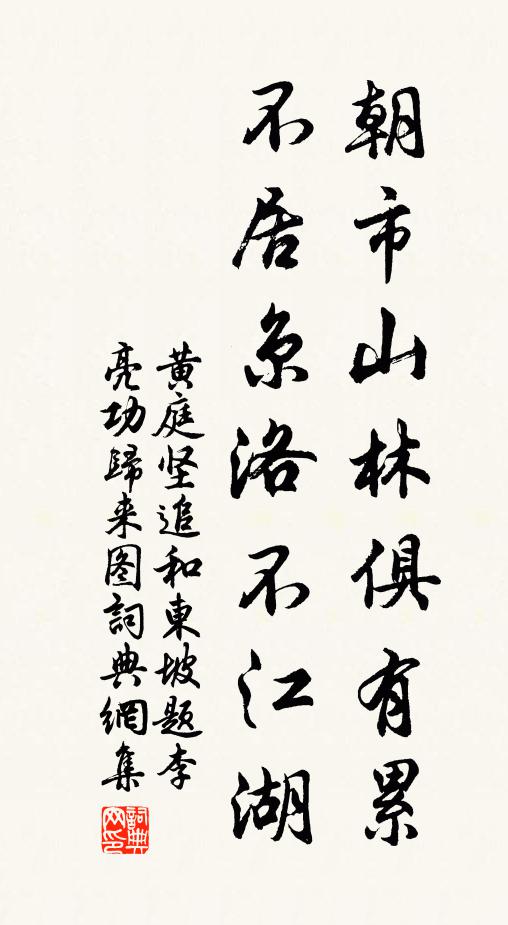 朝市山林俱有累
不居京洛不江湖
黄庭坚追和東坡题李
亮功歸来图詞典網集
詞典
网印